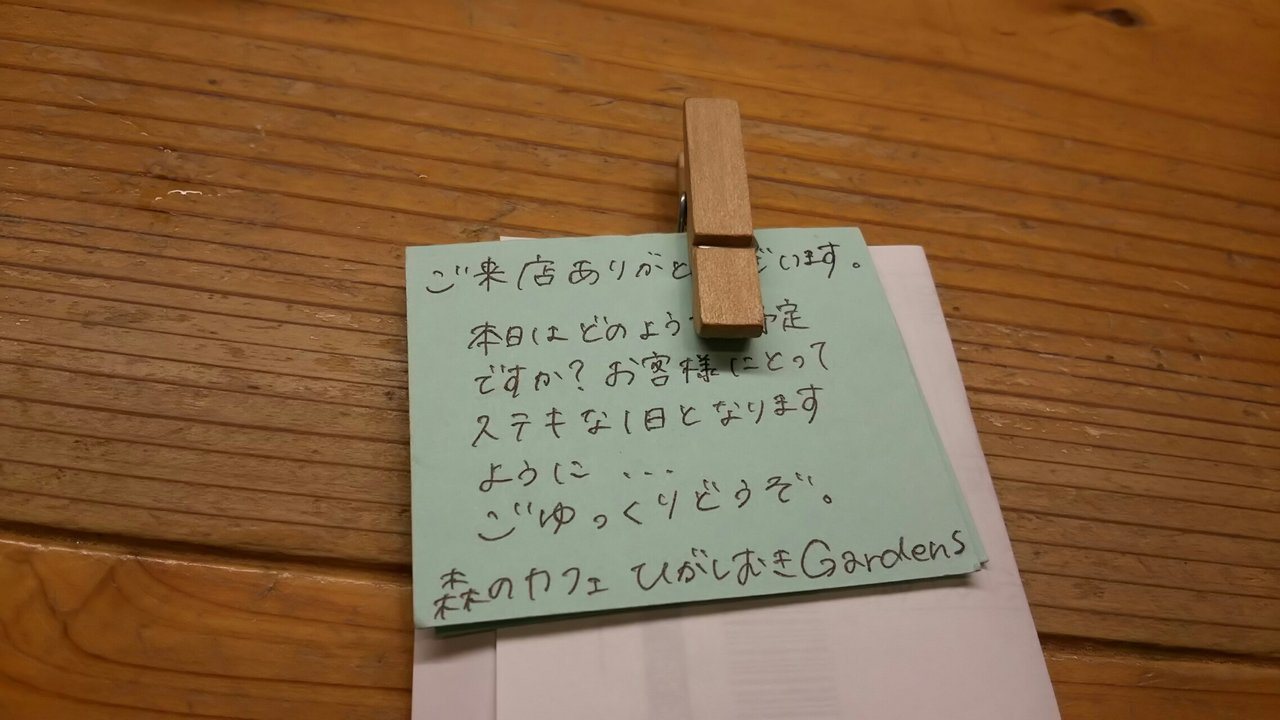 ご来店ありがと ざいます。
本日はどのよう 予定
ですか?お客様にとって
ステキな1日となります
ように ...
ごゆっくりどうぞ。
森のカフェ ひがしむきGardens